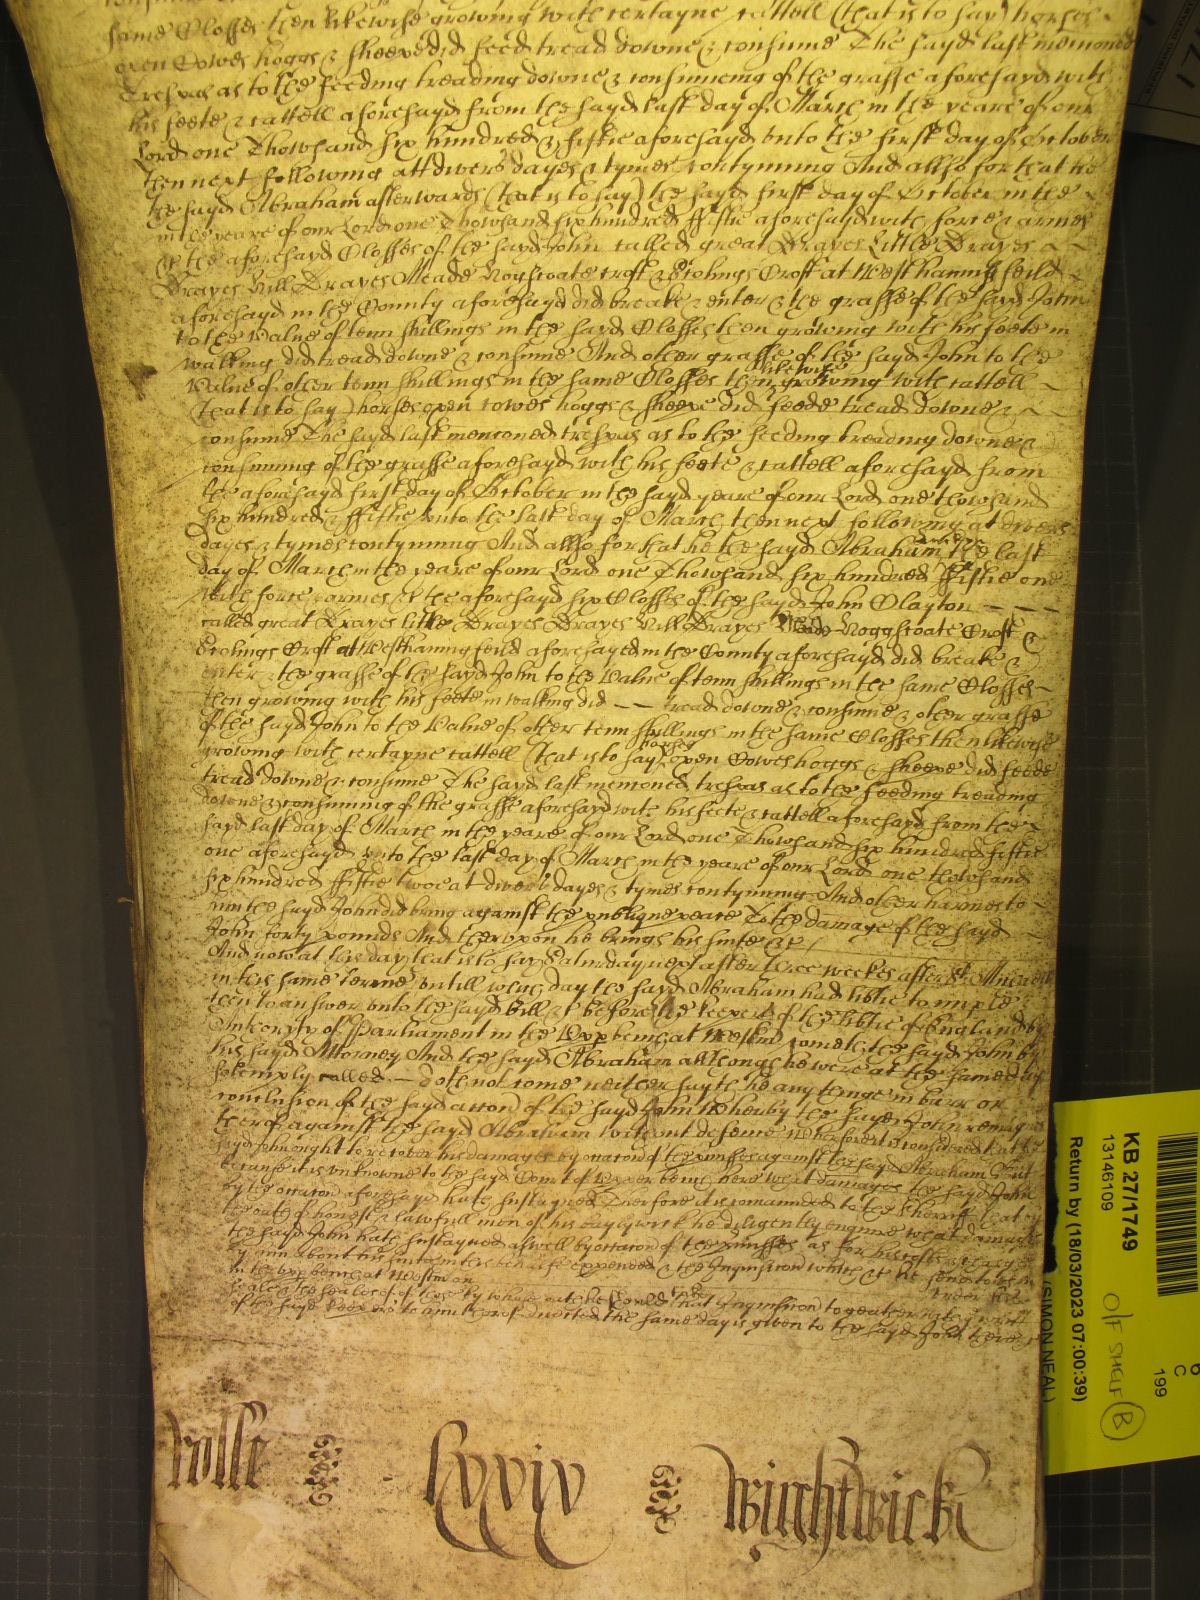 same Closses then likewise growing with certayne cattell (that is to say) horses
oxen Cowes hoggs & sheepe did feed tread downe & consume The sayd last menconed
trespas as to the feeding treading downe & consumeing of the grasse aforesayd with
his feete & cattell aforesayd from the sayd last day of March in the yeare of our
Lord one Thowsand six hundred & fiftie aforesayd unto the first day of October
then next following att divers dayes & tymes contynuing And allso for that he
the sayd Abraham afterwards (that is to say) the sayd first day of October in the
in the yeare of our Lord one Thowsand six hundred fiftie aforesayd with force & armes
&c the aforesayd Closses of the sayd John called great Drayes Little Drayes
Drayes Hill Drayes Meade Hoggscoate croft & Crofts at Westhanningfeild
aforesayd in the County aforesayd did breake & enter & the grasse of the sayd John
to the value of tenn shillings in the sayd Closses then growing with his feete in
walking did tread downe & consume And other grasse of the sayd John to the
value of other tenn shillings in the same Closses then likewise growing with cattell
(that is to say) horses oxen cowes hoggs & sheepe did feede tread downe &
consume The sayd last menconed trespas as to the feeding treading downe &
consuming of the grasse aforesayd with his feete & cattell aforesayd from
the aforesayd first day of October in the sayd yeare of our Lord one thowsand
six hundred & fiftie unto the last day of March then next following at divers
dayes & tymes contynuing And allso for that he the sayd Abraham the last
day of March in the yeare of our Lord one Thowsand six hundred fiftie one
with force & armes &c the aforesayd six Closses of the sayd John Clayton
called great Drayes little Drayes Drayes Hill Drayes Meade Hoggscoate Croft &
Croft at Westhanningfeild aforesayed in the County aforesayd did breake &
enter & the grasse of the sayd John to the value of tenn shillings in the same Closses
then growing with his feete in walking did tread downe & consume & other grasse
of the sayd John to the value of other tenn shillings in the same Closses then likewise
growing with certayne cattell (that is to say) horses oxen Cowes hoggs & sheepe did feede
tread downe & consume The sayd last menconed trespas as to the feeding treading
downe & consuming of the grasse aforesayd with his feete & cattell aforesayd from the
sayd last day of March in the yeare of our Lord one Thowsand six hundred fiftie
one aforesayd unto the last day of March in the yeare of our Lord one thowsand
six hundred fiftie twoe at divers dayes & tymes contynuing And other harmes to
him the sayd John did bring against the publique peace To the damage of the sayd
John forty pounds And thereupon he brings his suite &c
And now at this day that is to say Saturday next after three weekes after St Michaell
in this same terme untill which day the sayd Abraham had libtie to imple
then to answer unto the sayd bill &c before the keepers of the libtie of England by
Authority of Parliament in the Upper bench at Westm cometh the sayd John by
his sayd Attorney And the sayd Abraham although he were at the same day
solemply called doth not come neither sayth he any thinge in barr or
conclusion of the sayd accon of the sayd John Whereby the sayd John remaynes
therof against the sayd Abraham without defence Wherefore it is considered that the
sayd John ought to recover his damages by occacon of the premisses against the sayd Abraham But
because it is unknowne to the sayd Court of Upper bench here what damages the sayd John
by the occacon aforesayd hath sustayned Therefore it is comaunded to the Sherriff that by
the oath of honest & lawfull men of his baylywick he diligently enquire what damages
the sayd John hath sustayned aswell by occacon of the premisses as for his costs & charges
by him about his suite in this behalfe expended & the Inquisicon which &c he send to us
in the upp bench at Westm on
seale & the seales of those by whose oath he that Inquisicon together with
of the sayd keepers to him therof directed the same day is given to the sayd John there
Rolle lxxiv Wightwick
KB 27/1749
13146109
Return by (18/03/2023 07:00:39)
(SIMON NEAL)
O/F SHELF B
C
199
6